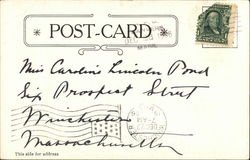 POST-CARD
Miss Caroline Lincoln Pond
Six Prospect Street
Winchester
Massachusetts
This side for address